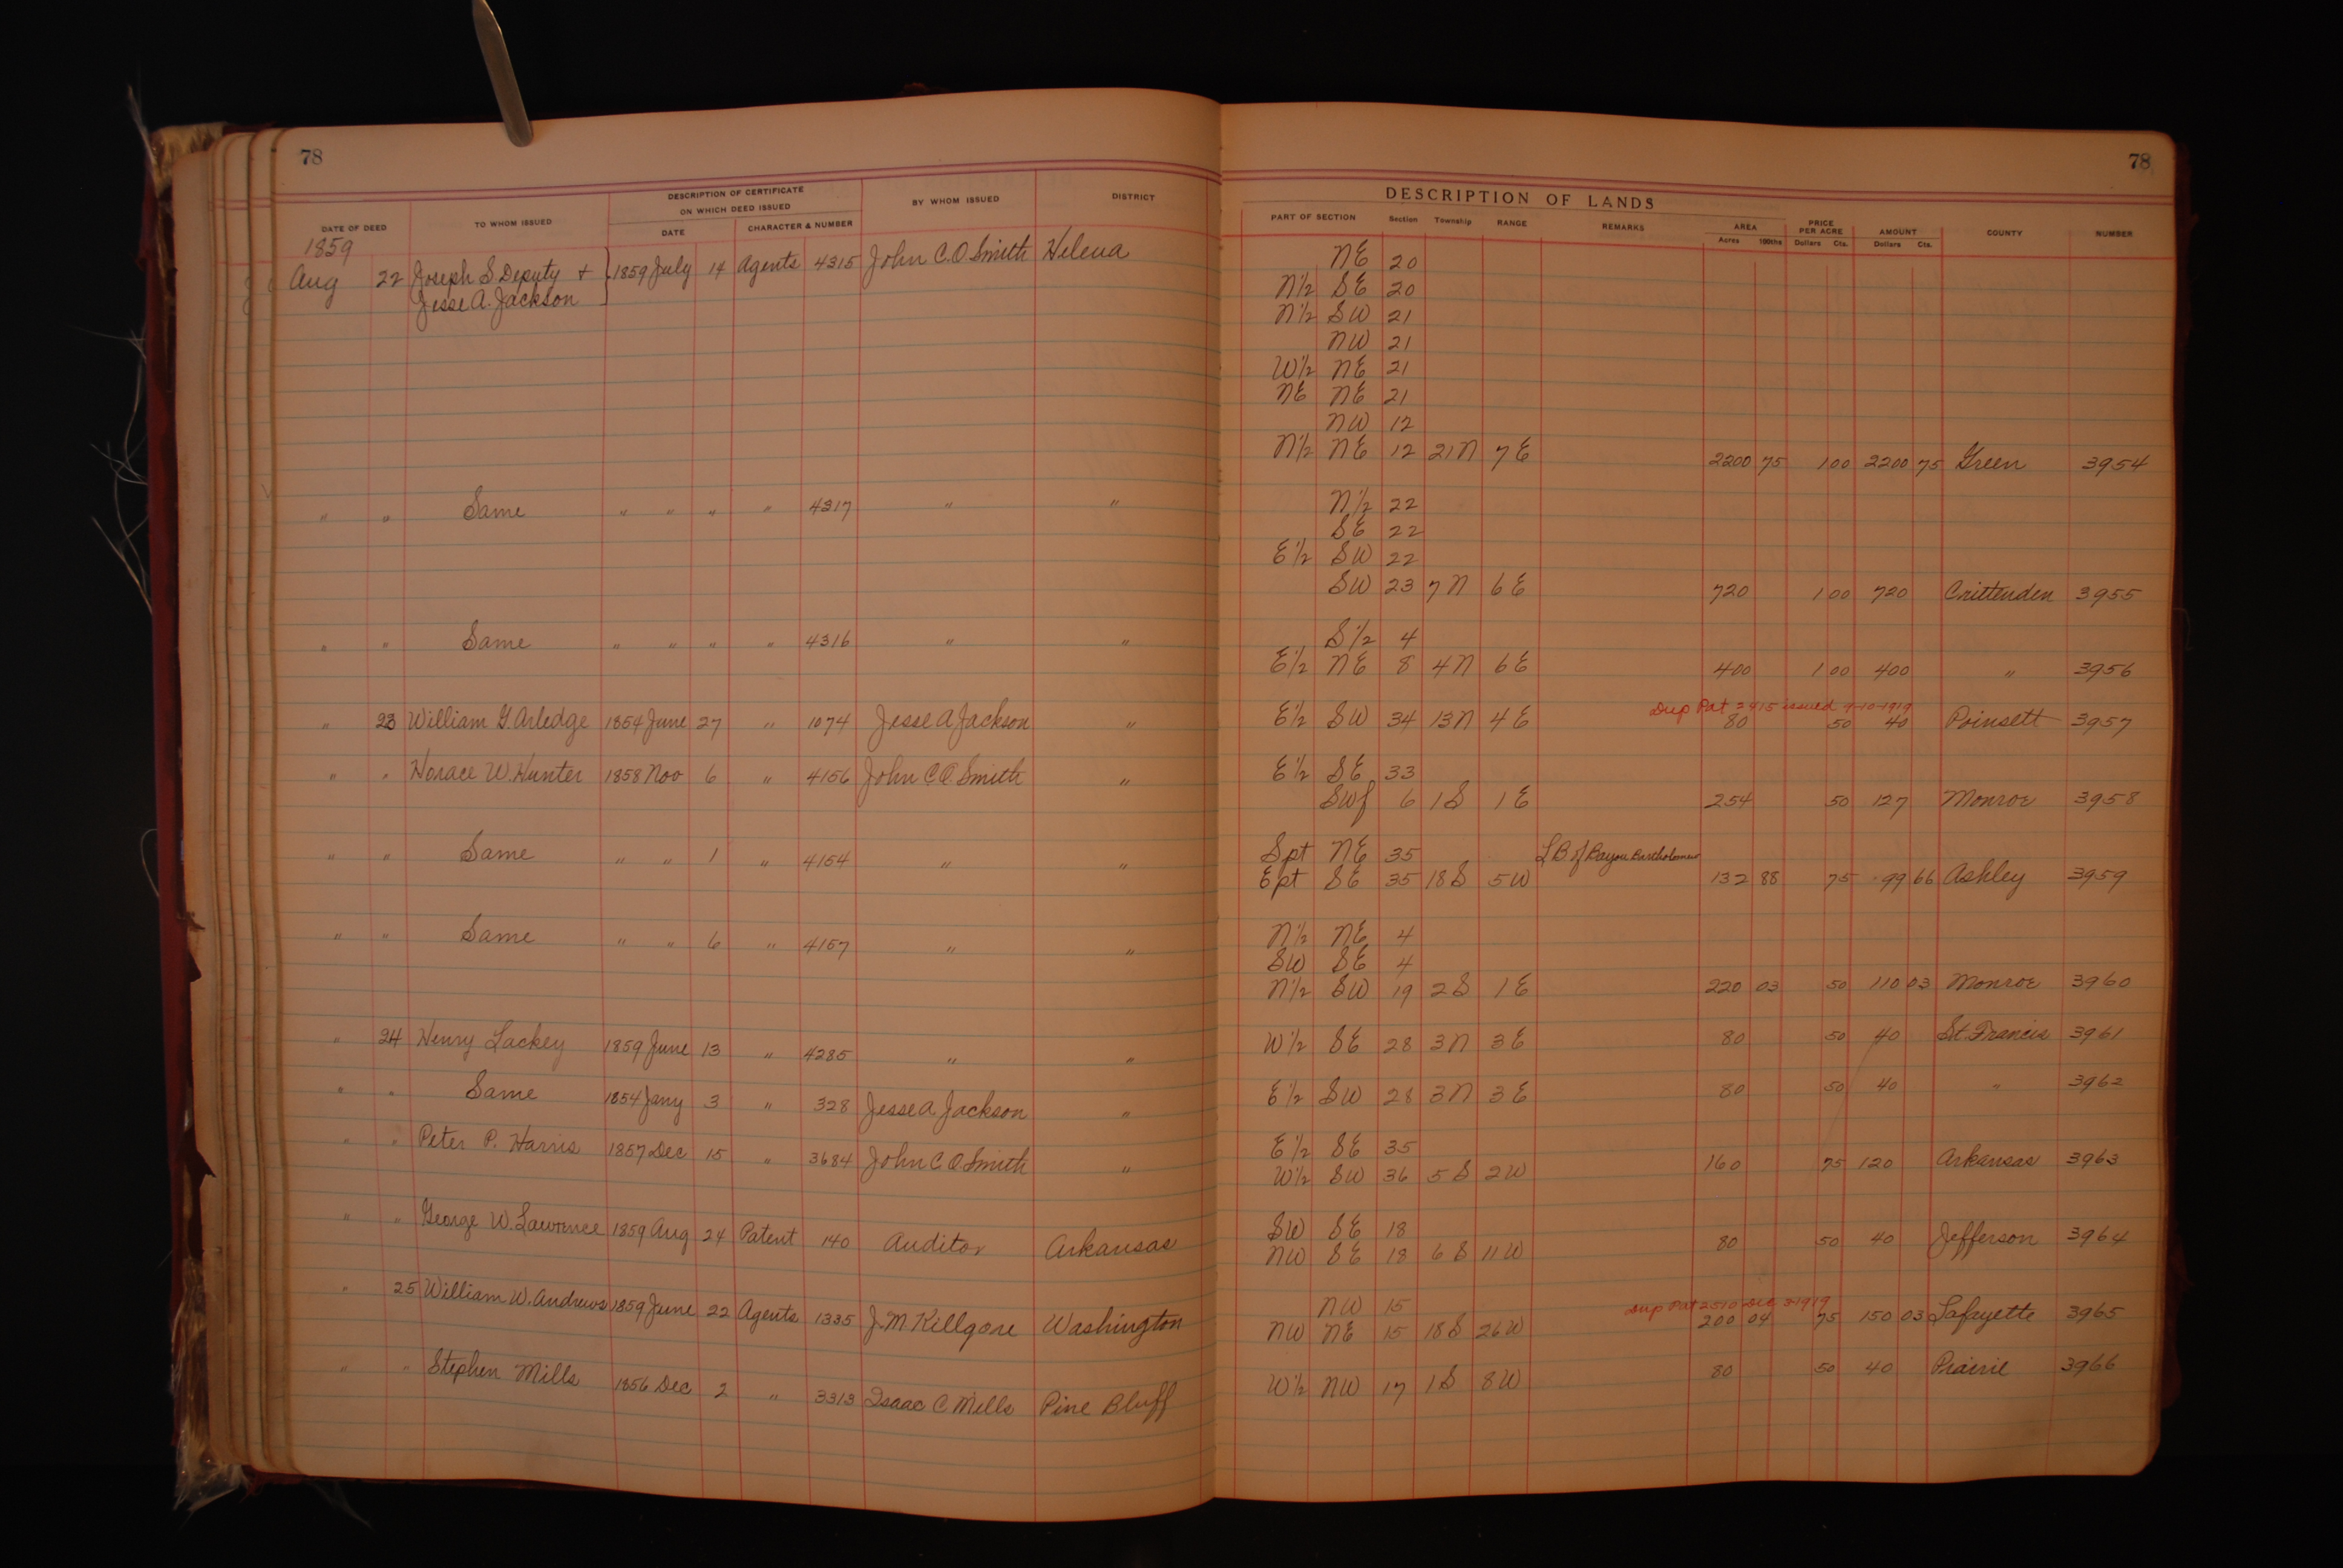 78
DATE OF DEED TO WHOM ISSUED DESCRIPTION OF CERTIFICATE ON WHICH DEED ISSUED DATE CHARACTER & NUMBER BY WHOM ISSUED DISTRICT
1859
Aug 22 Joseph S Deputy + 1859 July 14 Agents 4315 John C.O Smith Helena
Jesse A. Jackson
" " Same " " " " 4317 " "
" " Same " " " " 4316 " "
" 23 William G. Arledge 1854 June 27 " 1074 Jesse A Jackson "
" " Horace W. Hunter 1858 Nov 6 " 4156 John C O Smith "
" " Same " " 1 " 4154 " "
" " Same " " 6 " 4157 " "
" 24 Henry Lackey 1859 June 13 " 4285 " "
" " Same 1854 Jany 3 " 328 Jesse A Jackson "
" " Peter P. Harris 1857 Dec 15 " 3684 John C O Smith "
" " George W. Lawrence 1859 Aug 24 Patent 140 Auditor Arkansas
" 25 William W. Andrews 1859 June 22 Agents 1335 J. M Killgore Washington
" " Stephen Mills 1856 Dec 2 " 3313 Isaac C Mills Pine Bluff
78
DESCRIPTION OF LANDS
PART OF SECTION Section Township RANGE REMARKS AREA Acres 100ths PRICE PER ACRE Dollars Cts. AMOUNT Dollars Cts. COUNTY NUMBER
NE 20
N½ SE 20
N½ SW 21
NW 21
W½ NE 21
NE NE 21
NW 12
N½ NE 12 21N 7E 2200 75 1 00 2200 75 Green 3954
N½ 22
SE 22
E½ SW 22
SW 23 7N 6E 720 1 00 720 Crittenden 3955
S½ 4
E½ NE 8 4N 6E 400 1 00 400 " 3956
Dup Pat 2415 issued 9-10-1919
E½ SW 34 13N 4E 80 50 40 Poinsett 3957
E½ SE 33
SWf 6 1S 1E 254 50 127 Monroe 3958
Spt NE 35 L B. of Bayou Bartholomew
Ept SE 35 18S 5W 132 88 75 99 66 Ashley 3959
N½ NE 4
SW SE 4
N½ SW 19 2S 1E 220 03 50 110 03 Monroe 3960
W½ SE 28 3N 3E 80 50 40 St. Francis 3961
E½ SW 28 3N 3E 80 50 40 " 3962
E½ SE 35
W½ SW 36 5S 2W 160 75 120 Arkansas 3963
SW SE 18
NW SE 18 6S 11W 80 50 40 Jefferson 3964
NW 15 Dup Pat 2510 Dec 3-1919
NW NE 15 18S 26W 200 04 75 150 03 Lafayette 3965
W½ NW 17 1S 8W 80 50 40 Prairie 3966